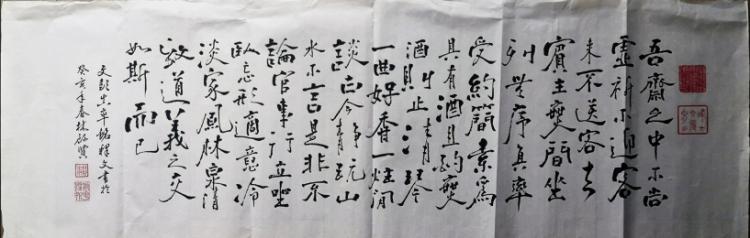 吾齋之中不尚
虛礼不迎客
来不送客去
賓主無間坐
列無序真率
為約簡素為
具有酒且酌無
酒且止清琴
一曲好香一炷閒
談古今静玩山
水不言是非不
論官事行立坐
卧忘形適意冷
淡家風林泉清
致道義之交
如斯而已
文彭草銘釋文書於
癸亥年春林